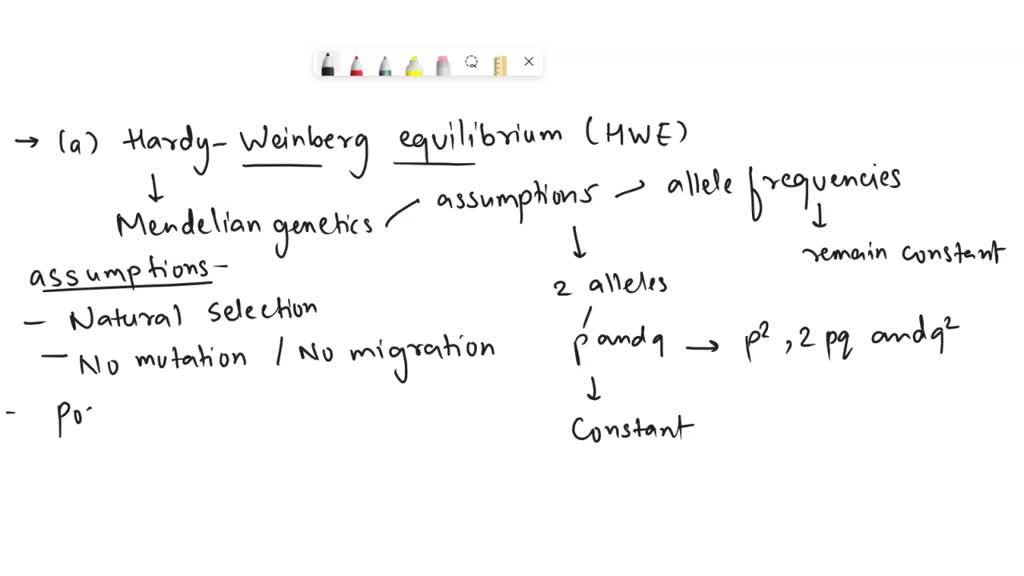 → (a) Hardy- Weinberg equilibrium (HWE)
↓
Mendelian genetics assumptions → allele frequencies
↓
remain constant
assumptions-
- Natural selection
- No mutation / No migration
- Po
↓
2 alleles
p and q → p², 2 pq and q²
↓
Constant